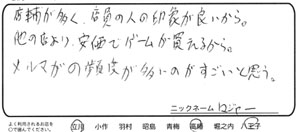 店舗が多く、店員の人の印象が良いから。
他の店より、安価でゲームが買えるから。
メルマガの頻度が多いのがすごいと思う。
ニックネーム ロジャー
よく利用されるお店を
○で囲んでください。 立川 小作 羽村 昭島 青梅 福生 堀之内 八王子